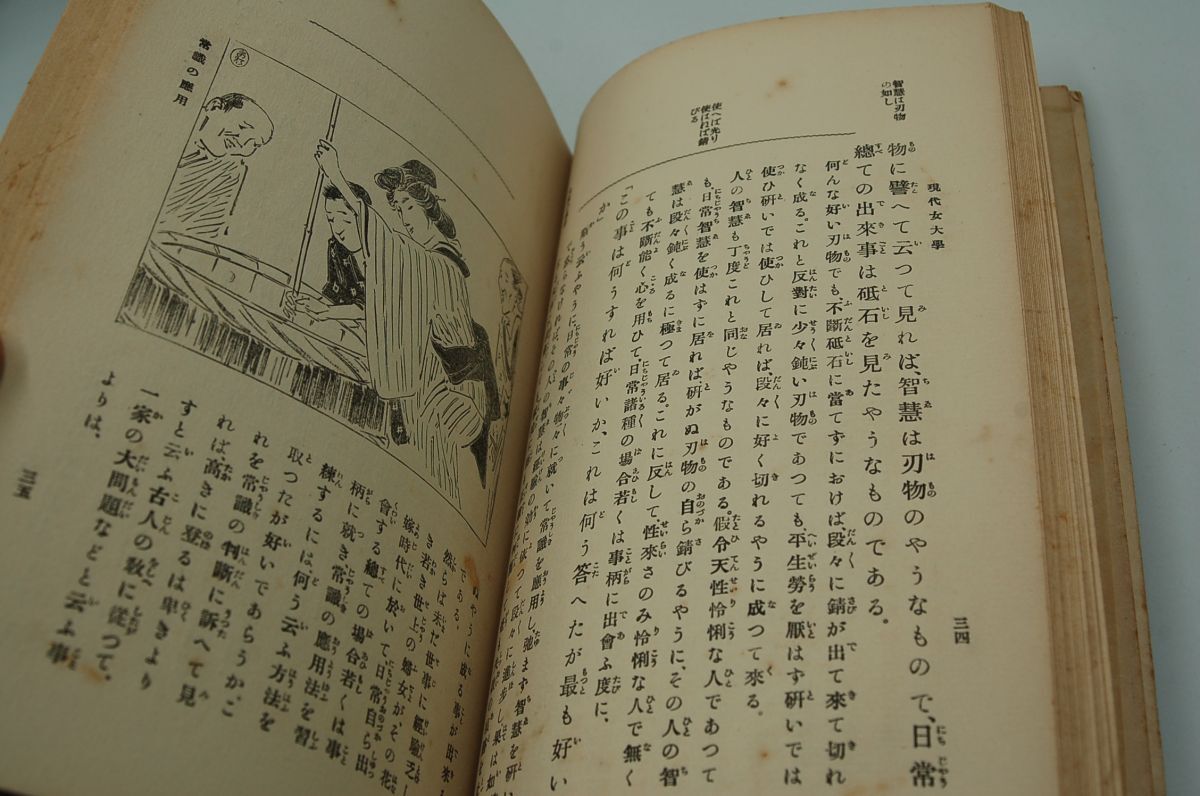 現代女大學
三四
智慧は刃物
の如し
使へば光り
使はねば錆
びる
物に譬へて云つて見れば、智慧は刃物のやうなもので、日常
總ての出來事は砥石を見たやうなものである。
何んな好い刃物でも不斷砥石に當てずにおけば段々に錆が出て來て切れ
なく成る。これと反對に少々鈍い刃物であつても、平生勞を厭はず研いでは
使ひ研いでは使ひして居れば、段々に好く切れるやうに成つて來る。
人の智慧も丁度これと同じやうなものである。假令天性怜悧な人であつて
も、日常智慧を使はずに居れば研がぬ刃物の自ら錆びるやうに、その人の智
慧は段々鈍く成るに極つて居る。これに反して、性來さのみ怜悧な人で無く
ても不斷能く心を用ひて、日常諸種の場合若くは事柄に出會ふ度に、
「この事は何うすれば好いか、これは何う答へたが最も好い
か」
常識の應用
やうに成る事が出來
である。
然らば未だ世事に經驗乏し
き若き世上の婦女が、その花
嫁時代に於いて日常自ら出
會する總ての場合若くは事
柄に就き常識の應用法を習
練するには、何う云ふ方法を
取つたが好いであらうか。こ
れを常識の判斷に訴へて見
れば、高きに登るは卑きより
すと云ふ古人の敎に從つて、
一家の大問題などと云ふ事
よりは、
三五